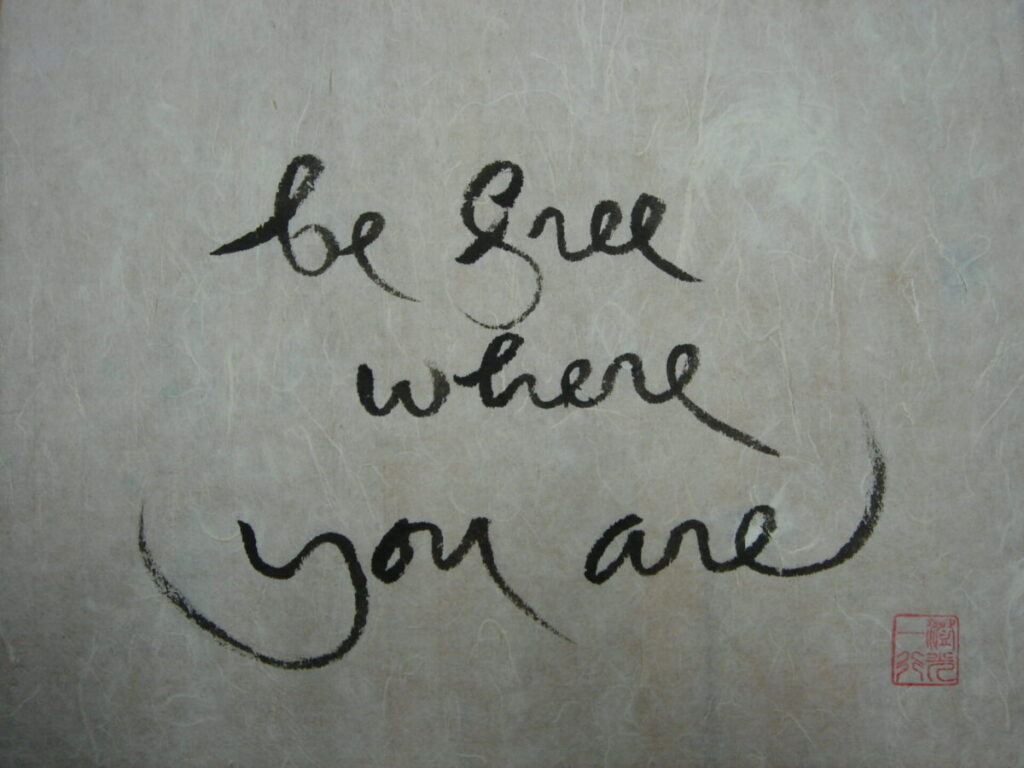 be free
where
you are
澄光
一行